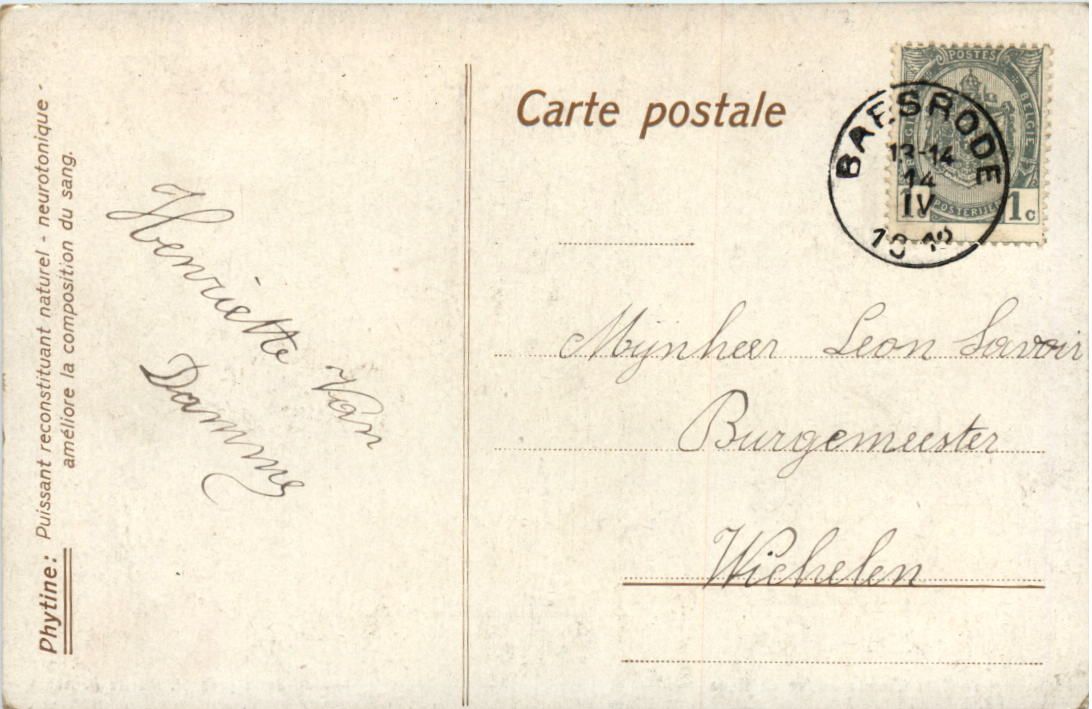 Phytine: Puissant reconstituant naturel - neurotonique -
améliore la composition du sang.
Henriette Van
Damme
Carte postale
POSTES
BELGIE
POSTERIJEN
1c
BAESRODE
13-14
14
IV
Mijnheer Leon Savoir
Burgemeester
Wichelen